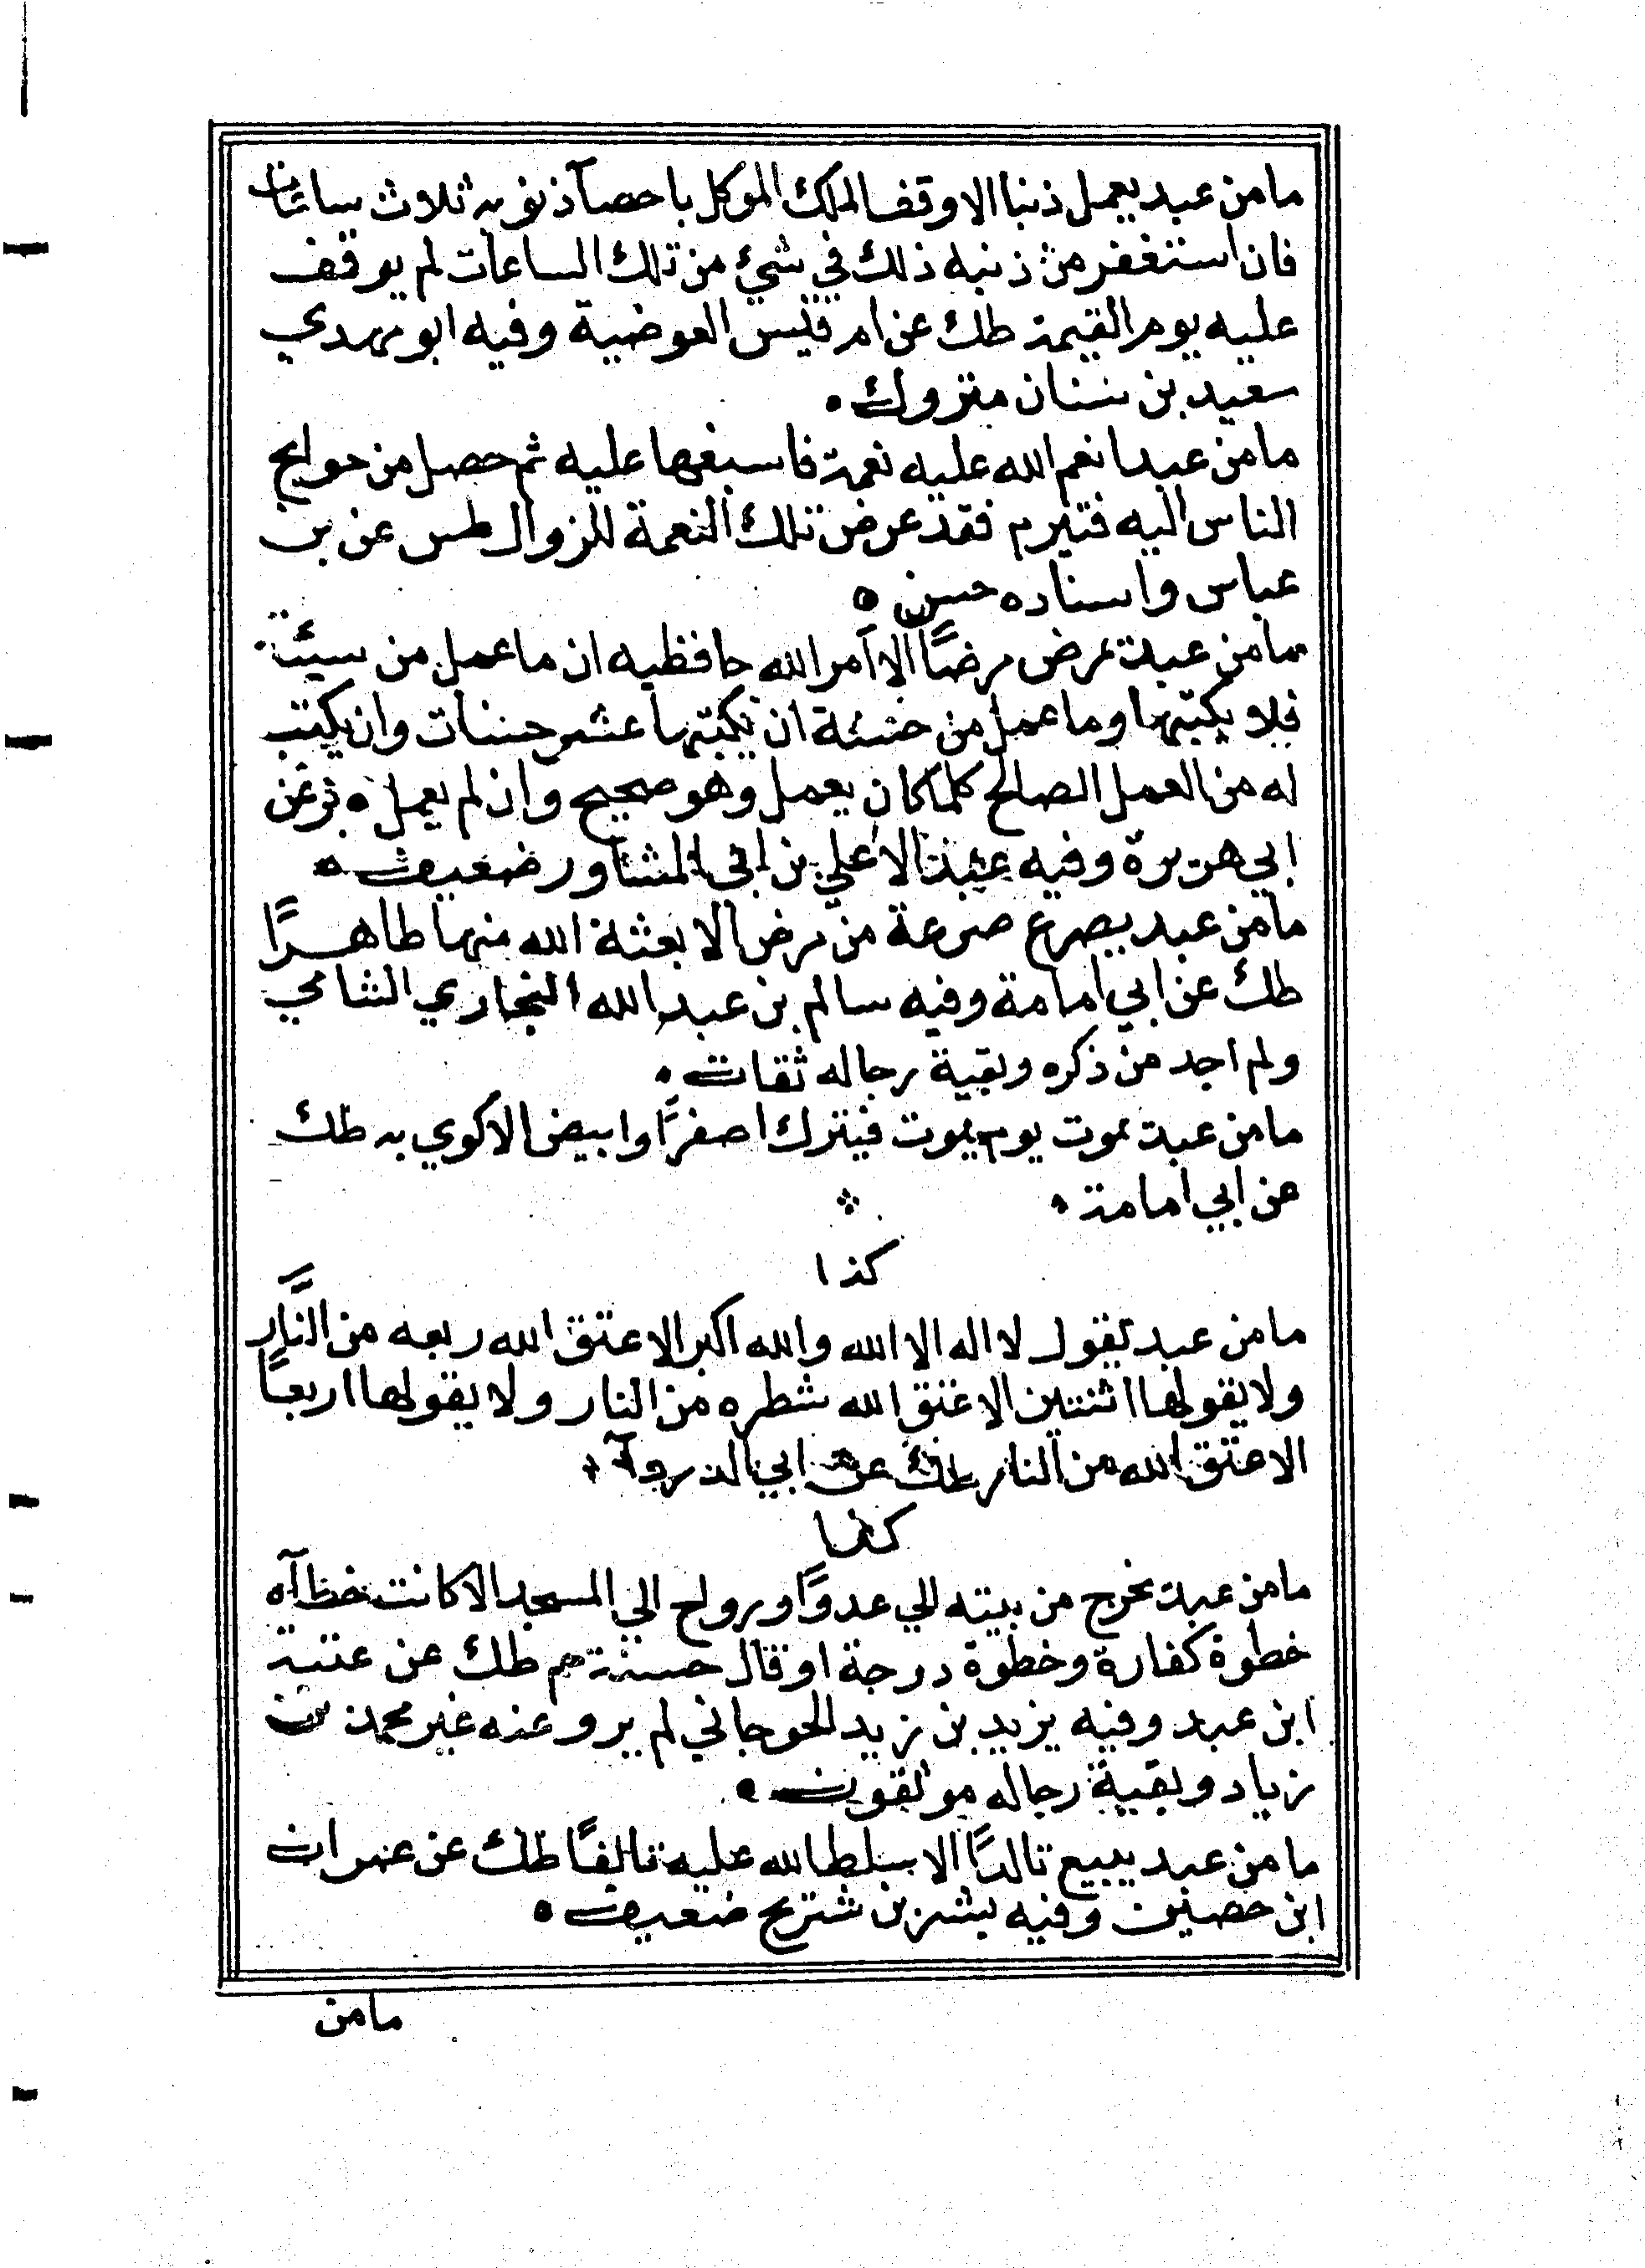 مامن عبد يعمل ذنبا الا وقف الملك الموكل باحصآ ذنوبه ثلاث ساعات
فان استغفر من ذنبه ذلك في شئ من تلك الساعات لم يوقف
عليه يوم القيمة طك عن ام قيس العوضية وفيه ابو مهدي
سعيد بن سنان متروك ه
مامن عبد انعم الله عليه نعمة فاسبغها عليه ثم حصل من حوايج
الناس اليه فتبرم فقد عرض تلك النعمة للزوال طس عن بن
عباس واسناده حسن ه
مامن عبد يمرض مرضًا الا امر الله حافظيه ان ما عمل من سيئة
فلا يكتبها وما عمل من حسنة ان يكتبها عشر حسنات وان يكتب
له من العمل الصالح كلما كان يعمل وهو صحيح وان لم يعمل ه عن
ابي هريرة وفيه عبد الاعلي بن ابي المشاور ضعيف ه
مامن عبد يصرع صرعة من مرض الا بعثة الله منها طاهرًا
طك عن ابي امامة وفيه سالم بن عبد الله النجاري الشامي
ولم اجد من ذكره وبقية رجاله ثقات ه
مامن عبد يموت يوم يموت فيترك اصفرًا وابيض الا كوي به طك
عن ابي امامة ه
كذا
مامن عبد يقول لا اله الا الله والله اكبر الا عتق الله ربعه من النار
ولا يقولها اثنتين الا عتق الله شطره من النار ولا يقولها اربعًا
الا عتق الله من النار طك عن ابي الدردآ ه
كذا
مامن عبد يخرج من بيته الي عدوًا ورواح الي المسجد الا كانت خطآه
خطوة كفارة وخطوة درجة او قال حسنة حم طك عن عتبة
ابن عبد وفيه يزيد بن زيد الحوجاني لم يرو عنه غير محمد بن
زياد وبقية رجاله موثقون ه
مامن عبد يبيع تالدًا الا سلط الله عليه تالفًا طك عن عمران
ابن حصين وفيه بشر بن شريح ضعيف ه
مامن